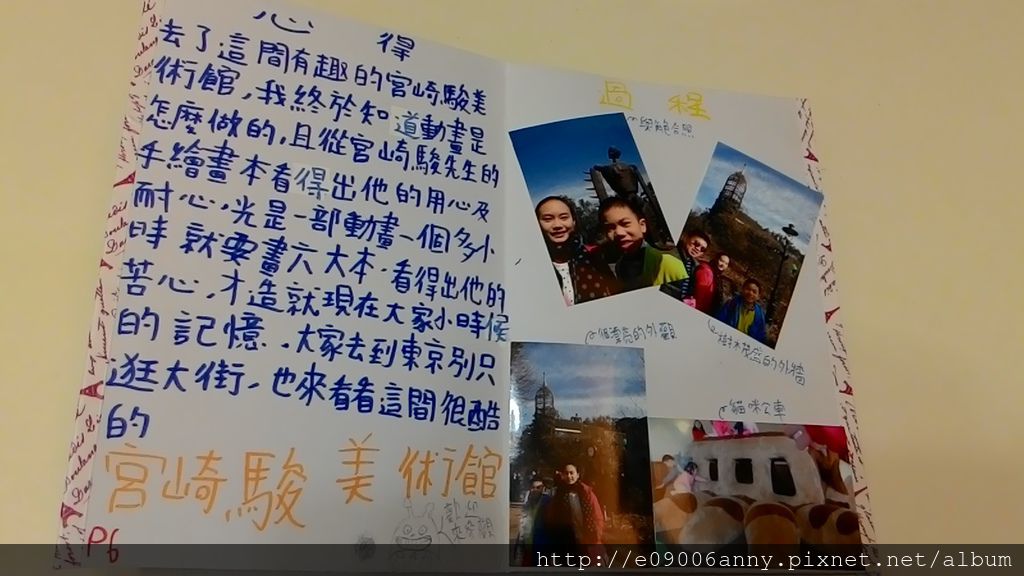 心得
去了這間有趣的宮崎駿美
術館,我終於知道動畫是
怎麼做的,且從宮崎駿先生的
手繪畫本看得出他的用心及
耐心,光是一部動畫一個多小
時就要畫六大本,看得出他的
苦心,才造就現在大家小時候
的記憶,大家去到東京別只
逛大街,也來看看這間很酷
的
宮崎駿美術館
歡迎
P6
過程
個漂亮的外觀
樹木茂密的外牆
貓咪公車
http://e09006anny.pixnet.net/album